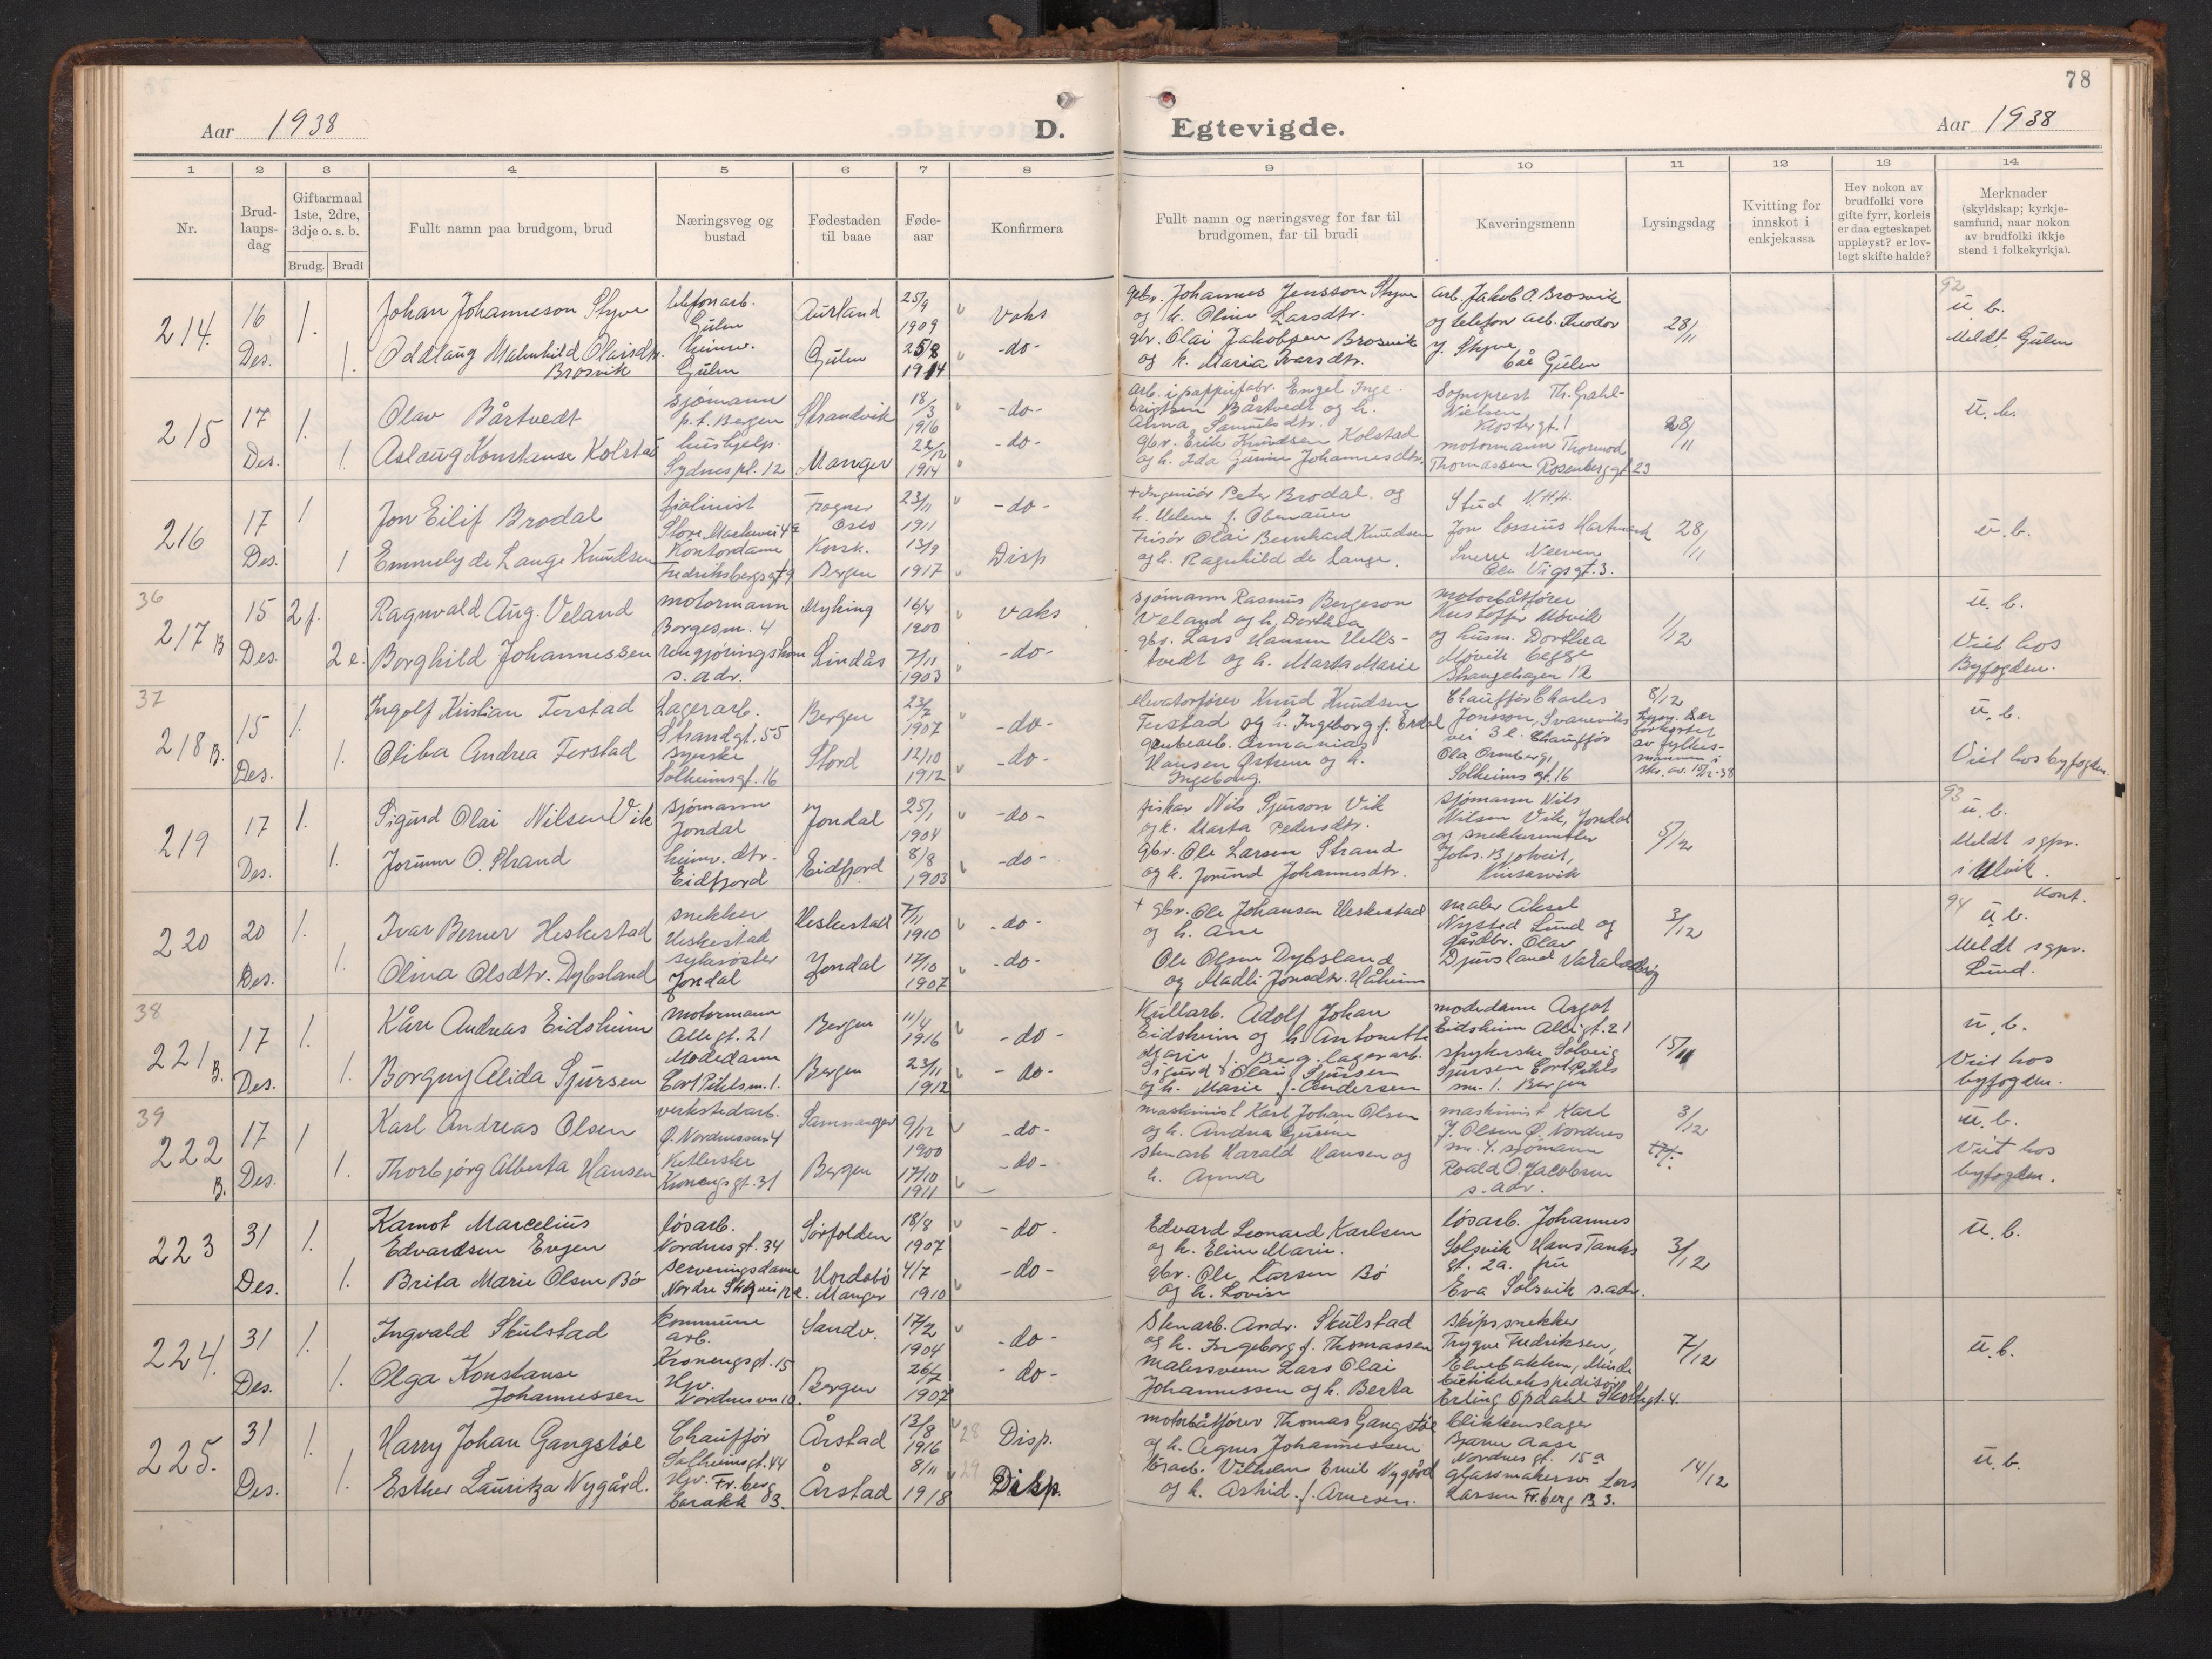 78
Aar 1938
D.
Egtevigde.
Aar 1938
1 2 3 4 5 6 7 8 9 10 11 12 13 14
Nr.
Brud-
laups-
dag
Giftarmaal
1ste, 2dre,
3dje o. s. b.
Brudg. Brudi
Fullt namn paa brudgom, brud
Næringsveg og
bustad
Fødestaden
til baae
Føde-
aar
Konfirmera
Fullt namn og næringsveg for far til
brudgomen, far til brudi
Kaveringsmenn
Lysingsdag
Kvitting for
innskot i
enkjekassa
Hev nokon av
brudfolki vore
gifte fyrr, korleis
er daa egteskapet
uppløyst? er lov-
legt skifte halde?
Merknader
(skyldskap; kyrkje-
samfund, naar nokon
av brudfolki ikkje
stend i folkekyrkja).
214.
16
Des.
1.
1.
Johan Johanneson Styve
Oddlaug Malmhild Olaisdtr.
Brosvik
telefonarb.
Gulen
heimv.
Gulen
Aurland
Gulen
25/9
1909
25/8
1914
Vaks
-do-
gbr. Johannes Jensson Styve
og h. Oline Larsdtr.
gbr. Olai Jakobsen Brosvik
og h. Maria Ivarsdtr.
arb. Jakob O. Brosvik
og telefon arb. Teodor
J. Styve
båe Gulen
28/11
92
u. b.
Meldt Gulen
215
17
Des.
1.
1.
Olav Bårtvedt
Aslaug Konstanse Kolstad
sjømann
p.t. Bergen
hushjelp.
Sydnespl. 12
Strandvik
Manger
18/3
1916
22/12
1914
-do-
-do-
Anna Samuelsdtr.
gbr. Erik Knudsen Kolstad
og h. Ida Gurine Johannesdtr.
Sogneprest Th. Grahl-
Nielsen
Klostergt. 1
motormann Thormod
Thomassen Rosenberggt. 23
28/11
u. b.
216
17
Des.
1
1
Jon Eilif Brodal
Emmely de Lange Knudsen
fiolinist
Kontordame
Fredriksbergsgt 9
Frogner
Oslo
Korsk.
Bergen
23/11
1911
13/9
1917
-do-
Disp
+ Ingeniør Peter Brodal og
h. Helene f. Obenauer
Frisør Olai Bernhard Knudsen
og h. Ragnhild de Lange.
Stud N.H.H.
Sverre Neeven
Ole Vigsgt. 3.
28/11
u. b.
36
217 B
15
Des.
2 f.
2 e.
Ragnvald Aug. Veland
Borghild Johannessen
motormann
Borgesm. 4
rengjøringskone
s. adr.
Myking
Lindås
16/4
1900
7/11
1903
vaks
-do-
sjømann Rasmus Bergeson
Veland og h. Dorthea
gbr. Lars Hansen Helle-
tvedt og h. Marta Marie
motorbåtfører
Kristoffer Møvik
og husm. Dorthea
Møvik begge
Skangehagen 12
1/12
u. b.
Viet hos
Byfogden.
37
218 B.
15
Des.
1.
1.
Ingolf Kristian Ferstad
Oliba Andrea Ferstad
Lagerarb.
Strandgt. 55
syerske
Solheimsgt. 16
Bergen
Stord
23/7
1907
12/10
1912
-do-
-do-
elevatorfører Knud Knudsen
Ferstad og h. Ingeborg f. Erdal
grubearb. Annanias
Hansen Østrem og h.
Ingeborg
Chauffør Charles
Jonsson, Svaneviks
vei 3 e. Chauffør
Ola Ormberg,
Solheims gt. 16
8/12
u. b.
Viet hos byfogden.
219
17
Des.
1.
1.
Sigurd Olai Nilsen Vik
Jorunn O. Strand
sjømann
Jondal
heimv. dtr.
Eidfjord
Jondal
Eidfjord
25/1
1904
8/8
1903
-do-
-do-
fiskar Nils Sjurson Vik
og h. Marta Pedersdtr.
gbr. Ole Larsen Strand
og h. Jorund Johannesdtr.
sjømann Nils
Nilsen Vik, Jondal
og snekkermester
Johs. Bjotveit,
Kinsarvik
5/12
93
u. b.
Meldt sgpr.
i Ulvik.
Kont.
220
20
Des.
1.
1.
Ivar Berner Heskestad
Olina Olsdtr. Dybsland
snekker
Heskestad
sykesøster
Jondal
Heskestad
Jondal
7/11
1910
17/10
1907
-do-
-do-
+ gbr. Ole Johansen Heskestad
og h. Ane
Ole Olsen Dybsland
og Madli Jonsdtr. Håheim
maler Aksel
Nysted Lund og
gårdbr. Olav
Djuvsland
3/12
94
u. b.
Meldt sgpr.
Lund.
38
221 B.
17
Des.
1.
1.
Kåre Andreas Eidsheim
Borgny Alida Sjursen
motormann
Allegt. 21
Modedame
Cort Pihlsm. 1.
Bergen
Bergen
11/4
1916
23/11
1912
-do-
-do-
Kullarb. Adolf Johan
Eidsheim og h. Antonette
Marie f. Berg. lagerarb.
Sigurd Olai Sjursen
og h. Marie f. Andersen
modedame Argot
Eidsheim Allegt. 21
strykerske Solveig
Sjursen Cort Pihls
sm. 1. Bergen
15/11
u. b.
Viet hos
byfogden.
39
222 B.
17
Des.
1
1.
Karl Andreas Olsen
Thorbjørg Alberta Hansen
verkstedarb.
Ø. Nordnessm. 4
Kronengsgt. 31
Samnanger
Bergen
9/12
1900
17/10
1911
-do-
-do-
maskinist Karl Johan Olsen
og h. Andrea Gurine
stenarb Harald Hansen og
h. Anna
maskinist Karl
J. Olsen Ø. Nordnes
sm. 4. sjømann
Roald O. Jacobsen
s. adr.
3/12
u. b.
Viet hos
byfogden.
223
31
Des.
1.
1.
Karnot Marcelius
Edvardsen Evjen
Brita Marie Olsen Bø
løsarb.
Nordnesgt. 34
serveringsdame
Sørfolden
Hordabø
Manger
18/8
1907
4/7
1910
-do-
-do-
Edvard Leonard Karlsen
og h. Eline Marie.
gbr. Ole Larsen Bø
og h. Lovise
løsarb. Johannes
Solsvik Hans Tanks
gt. 2a. fru
Eva Solsvik s.adr.
3/12
u. b.
224.
31
Des.
1.
1.
Ingvald Skulstad
Olga Konstanse
Johannessen
kommune
arb.
Kronengsgt. 15
Hjv.
Nordnesvn 10.
Sandv.
Bergen
17/2
1904
26/7
1907
-do-
-do-
Stenarb. Andr. Skulstad
og h. Ingeborg f. Thomassen
malersvenn Lars Olai
Johannessen og h. Berta
skipssnekker
Trygve Fredriksen,
Elvebakken, Minde
butikkekspeditør
Erling Opdahl Skottegt. 4.
7/12
u. b.
225.
31
Des.
1.
1.
Harry Johan Gangstøe
Esther Lauritza Nygård.
Chauffør
Solheimsgt. 44
Hjv. Fr. berg
barakk 3.
Årstad
Årstad
13/8
1916
8/11
1918
28
29
Disp.
Disp.
motorbåtfører Thomas Gangstøe
og h. Agnes Johannessen
Vilhelm Emil Nygård
og h. Astrid f. Arnesen.
blikkenslager
Bjarne Aase
Nordnesgt. 15 a
glassmakersv. Lars
Larsen Fr.berg B 3.
14/12
u. b.